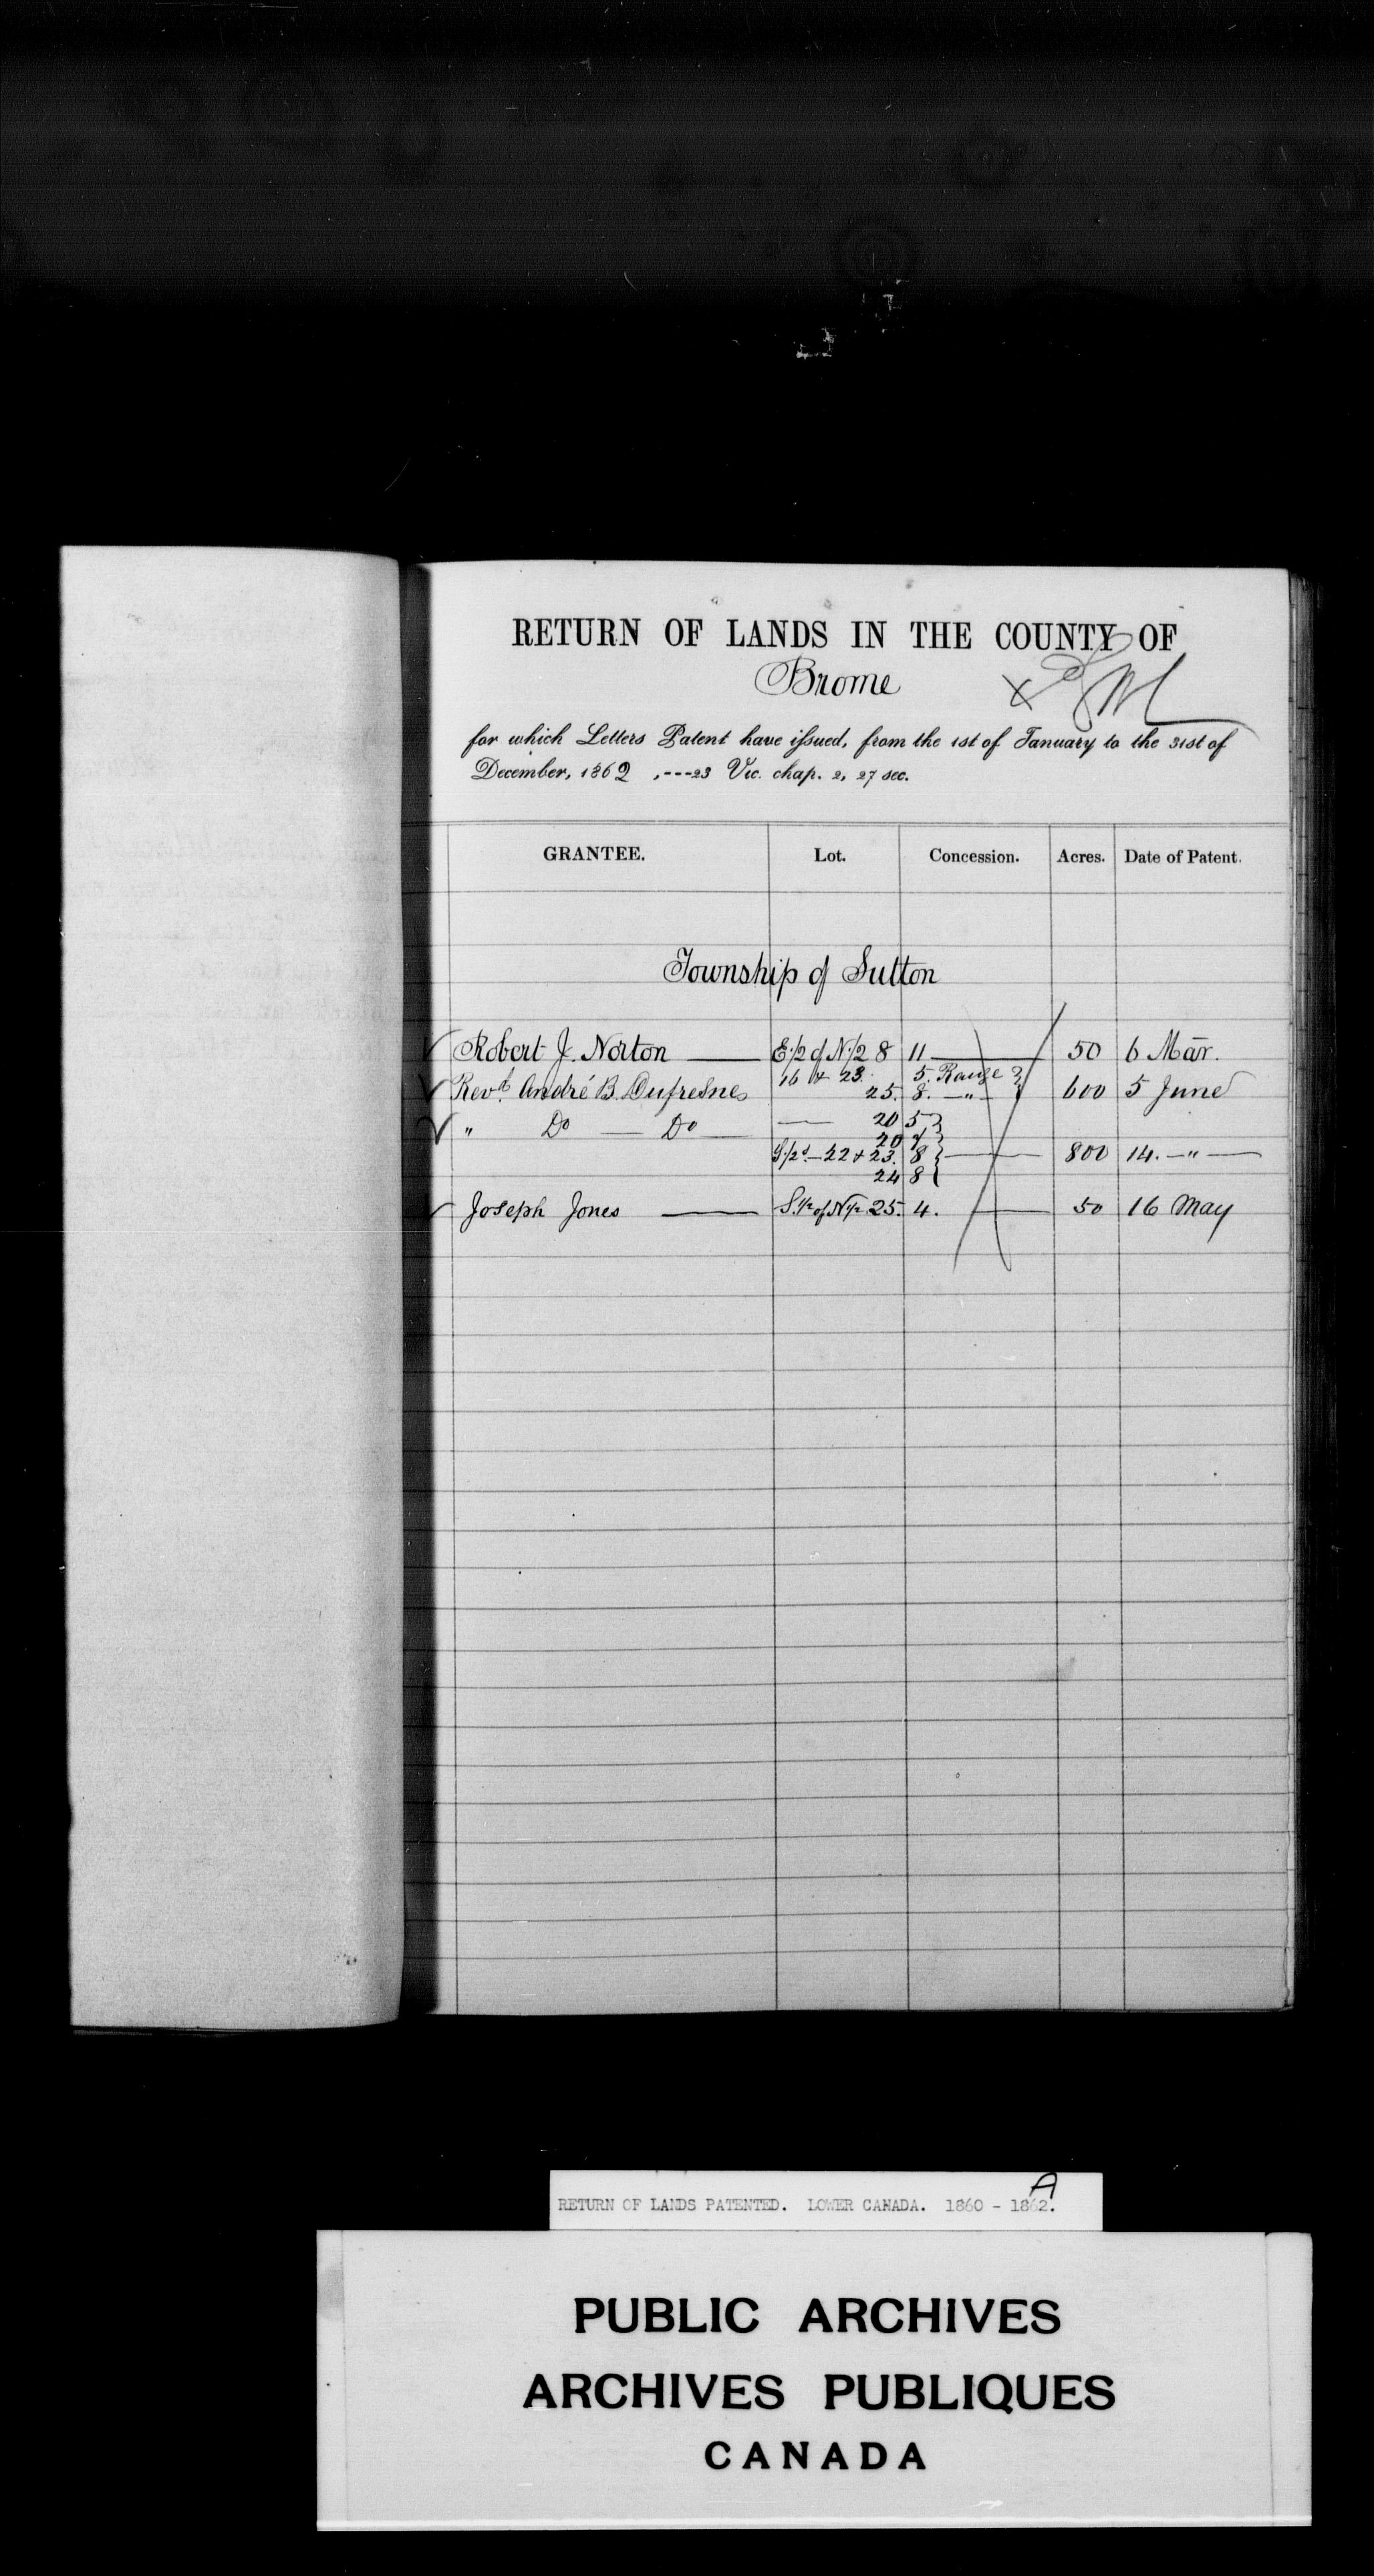 RETURN OF LANDS IN THE COUNTY OF
Brome
for which Letters Patent have issued, from the 1st of January to the 31st of
December, 1862 ,---23 Vic. chap. 2, 27 sec.
GRANTEE. Lot. Concession. Acres. Date of Patent.
Township of Sutton
Robert J. Norton — E. 1/2 of N. 1/2 8 11 — 50 6 Mar.
16 & 23. 5. Range
Revd. André B. Dufresnes 25. 8. — " — 600 5 June
" Do — Do — — 20 5
20 7
S. 1/2s. — 22 & 23. 8 — 800 14. — " —
24 8
Joseph Jones — S. 1/2 of N. 1/2 25. 4. — 50 16 May
A
RETURN OF LANDS PATENTED. LOWER CANADA. 1860 - 1862.
PUBLIC ARCHIVES
ARCHIVES PUBLIQUES
CANADA